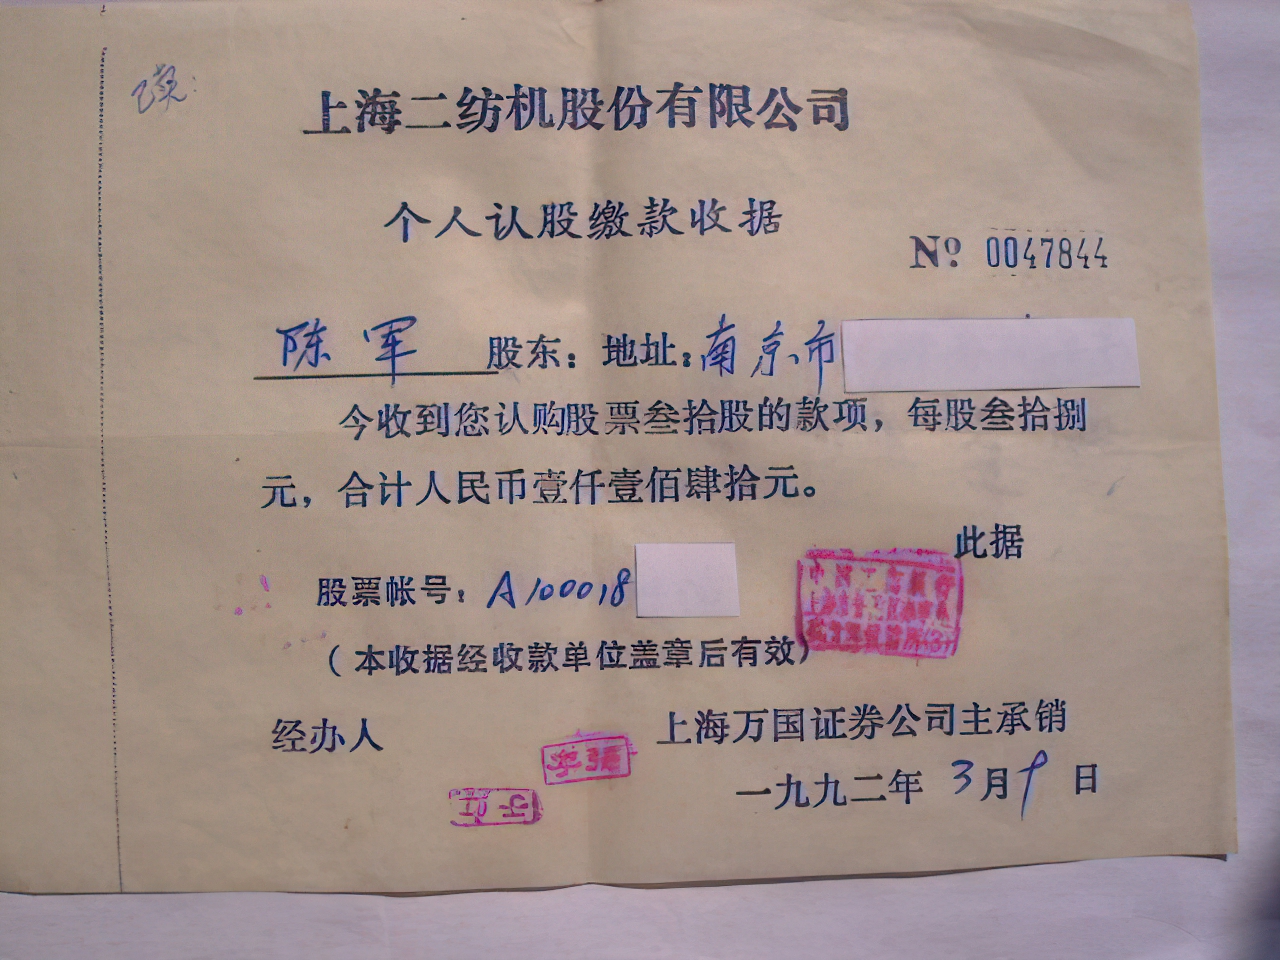 上海二纺机股份有限公司
个人认股缴款收据
№ 0047844
陈军 股东：地址：南京市
今收到您认购股票叁拾股的款项，每股叁拾捌
元，合计人民币壹仟壹佰肆拾元。
此据
股票帐号：A100018
（本收据经收款单位盖章后有效）
经办人
上海万国证券公司主承销
一九九二年 3月9日